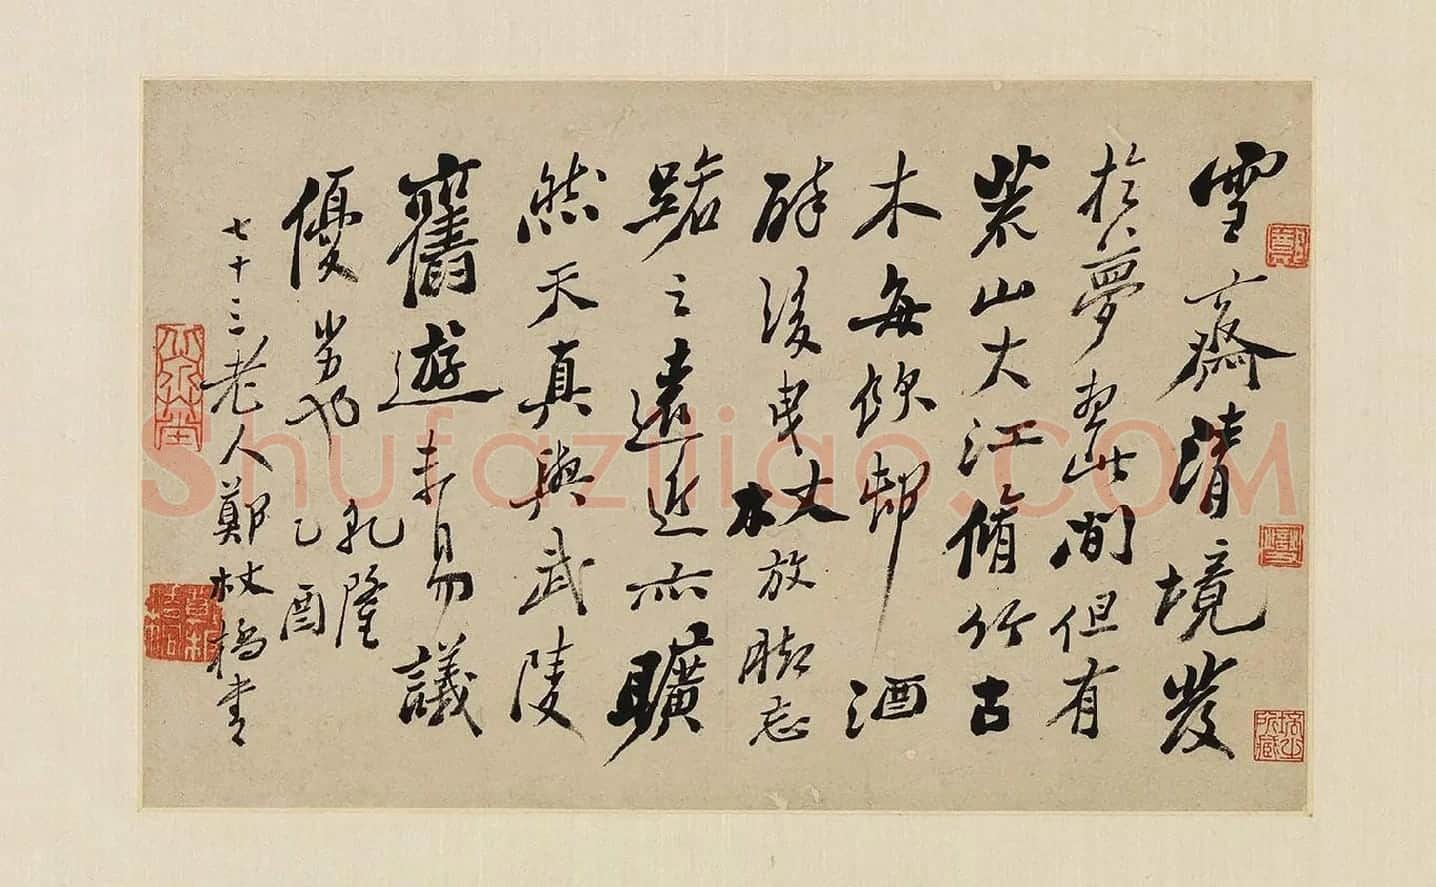 雪齋清境發
於夢寐此間但有
荒山大江脩竹古
木每飲邨酒
醉後曳杖放腳忘
路之遠近亦曠
然天真與武陵
舊遊未易議
優劣也
乾隆
乙酉
七十三老人鄭板橋書
Shufaziliao.COM